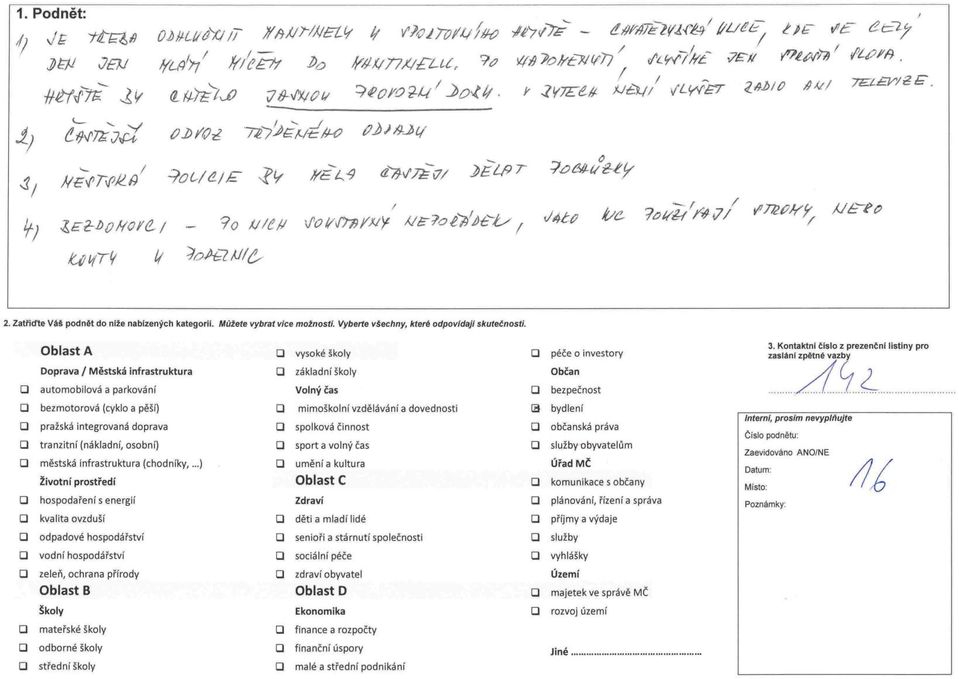 1. Podnět:
1) JE TŘEBA ODHLUČNIT MANTINELY U SPORTOVNÍHO HŘIŠTĚ – ULICE, KDE SE CELÝ
DEN JEN MLÁTÍ MÍČEM DO MANTINELU, PO NAPOMENUTÍ, SLYŠÍME JEN SPROSTÁ SLOVA.
HŘIŠTĚ BY CHTĚLO JASNOU PROVOZNÍ DOBU. V BYTECH NENÍ SLYŠET RÁDIO ANI TELEVIZE.
2) ČASTĚJŠÍ ODVOZ TŘÍDĚNÉHO ODPADU
3) MĚSTSKÁ POLICIE BY MĚLA ČASTĚJI DĚLAT POCHŮZKY
4) BEZDOMOVCI – PO NICH SOUSTAVNÝ NEPOŘÁDEK, JAKO WC POUŽÍVAJÍ STROMY, NEBO
KOUTY U POPELNIC
2. Zatřiďte Váš podnět do níže nabízených kategorií. Můžete vybrat více možností. Vyberte všechny, které odpovídají skutečnosti.
Oblast A
Doprava / Městská infrastruktura
automobilová a parkování
bezmotorová (cyklo a pěší)
pražská integrovaná doprava
tranzitní (nákladní, osobní)
městská infrastruktura (chodníky, ...)
Životní prostředí
hospodaření s energií
kvalita ovzduší
odpadové hospodářství
vodní hospodářství
zeleň, ochrana přírody
Oblast B
Školy
mateřské školy
odborné školy
střední školy
vysoké školy
základní školy
Volný čas
mimoškolní vzdělávání a dovednosti
spolková činnost
sport a volný čas
umění a kultura
Oblast C
Zdraví
děti a mladí lidé
senioři a stárnutí společnosti
sociální péče
zdraví obyvatel
Oblast D
Ekonomika
finance a rozpočty
finanční úspory
malé a střední podnikání
péče o investory
Občan
bezpečnost
bydlení
občanská práva
služby obyvatelům
Úřad MČ
komunikace s občany
plánování, řízení a správa
příjmy a výdaje
služby
vyhlášky
Území
majetek ve správě MČ
rozvoj území
Jiné ................................................
3. Kontaktní číslo z prezenční listiny pro
zaslání zpětné vazby
142
Interní, prosím nevyplňujte
Číslo podnětu:
Zaevidováno ANO/NE
Datum:
Místo:
Poznámky:
16